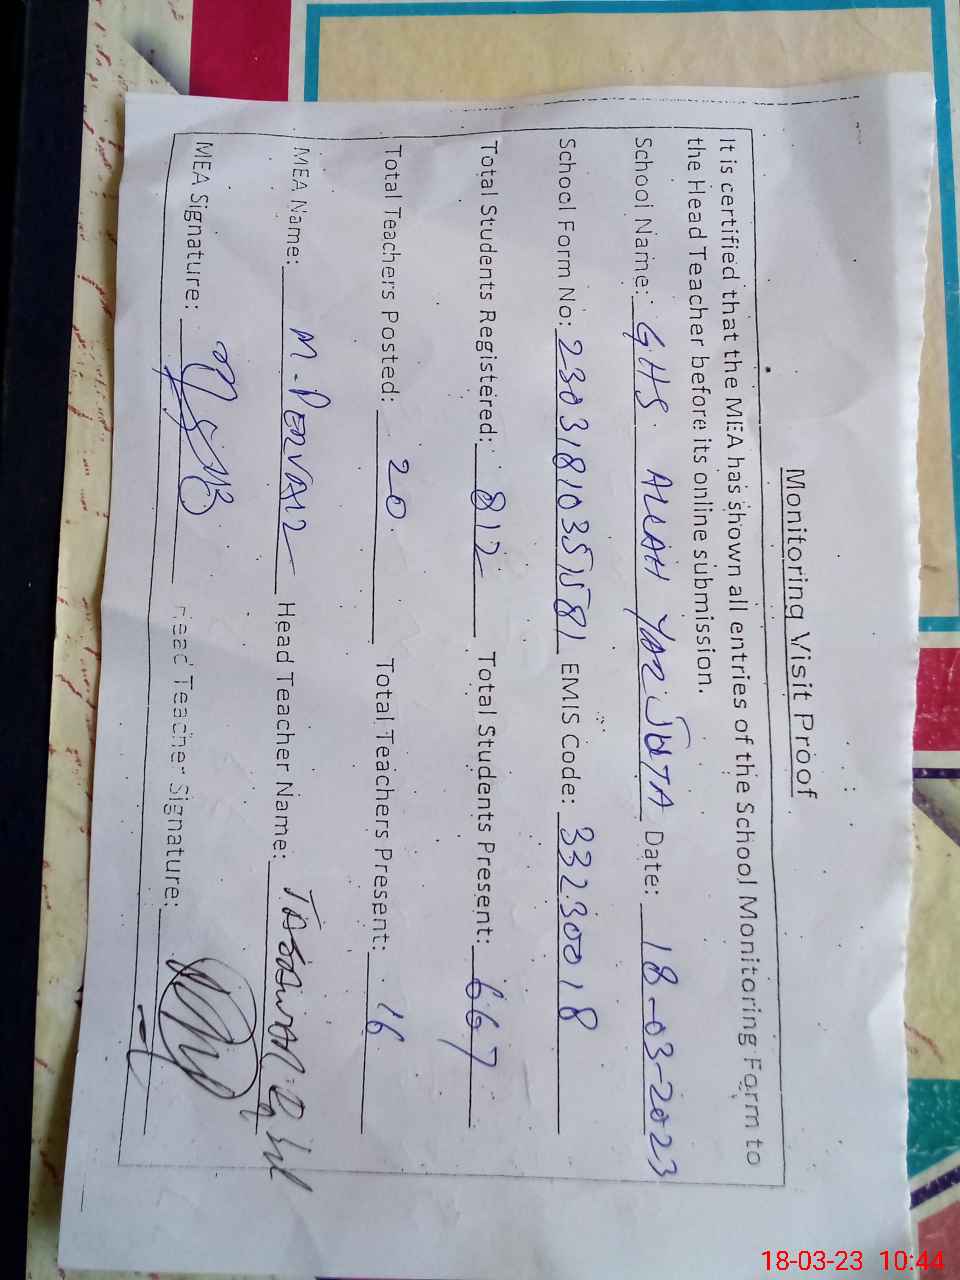 Monitoring Visit Proof
It is certified that the MEA has shown all entries of the School Monitoring Form to
the Head Teacher before its online submission.
School Name: GHS ALLAH YAR JUTA Date: 18-03-2023
School Form No: 23031810351581 EMIS Code: 33230018
Total Students Registered: 812 Total Students Present: 667
Total Teachers Posted: 20 Total Teachers Present: 16
MEA Name: M. PERVAIZ Head Teacher Name: TASAWAR
MEA Signature: Head Teacher Signature:
18-03-23 10:44